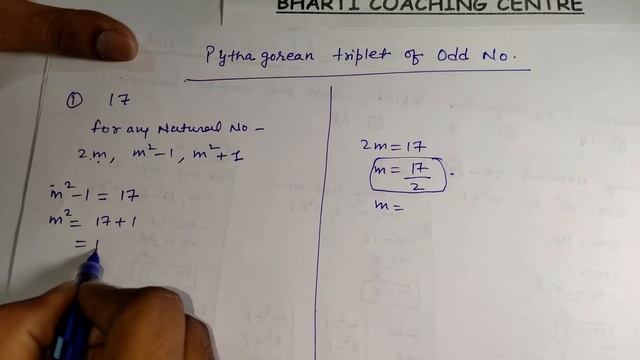 BHARTI COACHING CENTRE
Pythagorean triplet of Odd No.
① 17
for any Natural No –
2m, m²-1, m²+1
m²-1 = 17
m² = 17+1
= 1
2m = 17
m = 17/2 .
m =